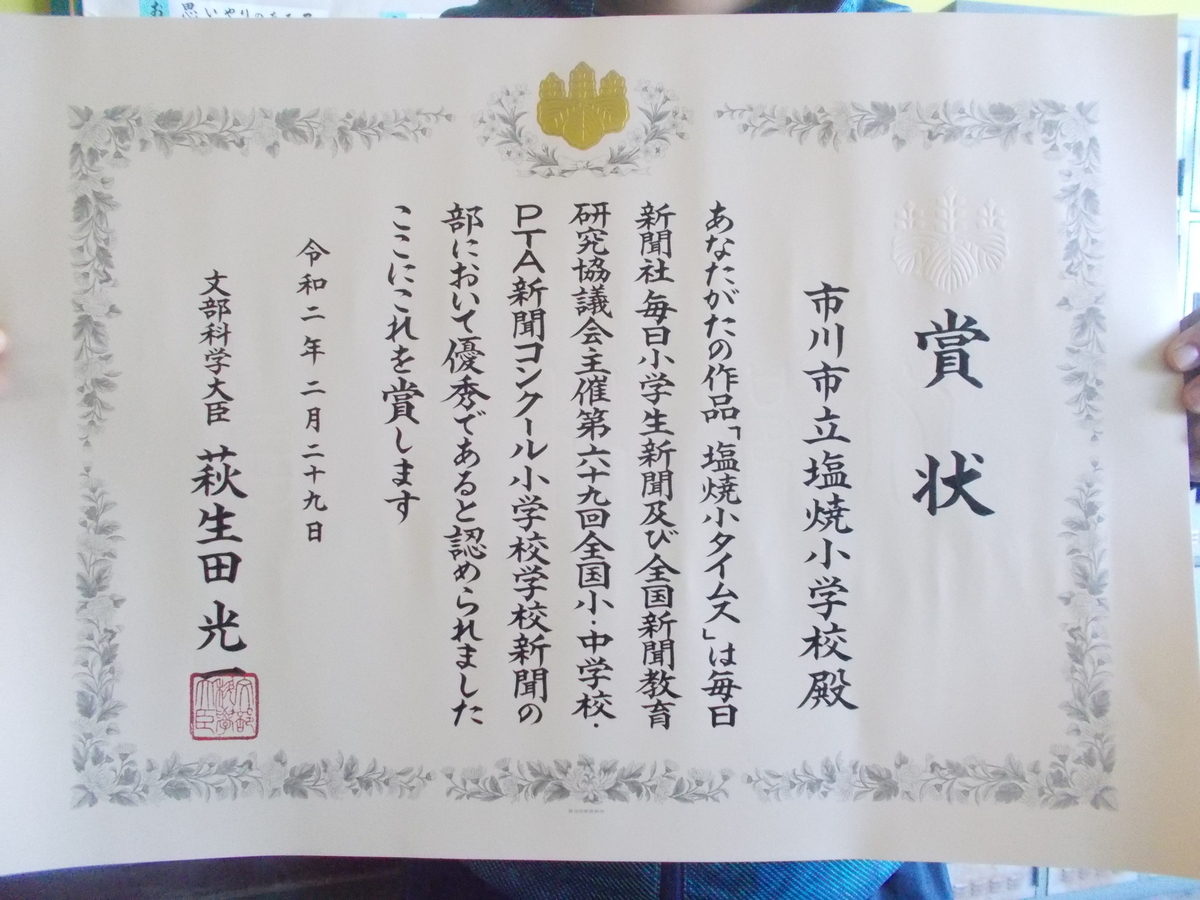 賞状
市川市立塩焼小学校殿
あなたがたの作品「塩焼小タイムス」は毎日
新聞社 毎日小学生新聞及び全国新聞教育
研究協議会主催第六十九回全国小・中学校・
PTA新聞コンクール小学校学校新聞の
部において優秀であると認められました
ここにこれを賞します
令和二年二月二十九日
文部科学大臣 萩生田光一
文部科学大臣